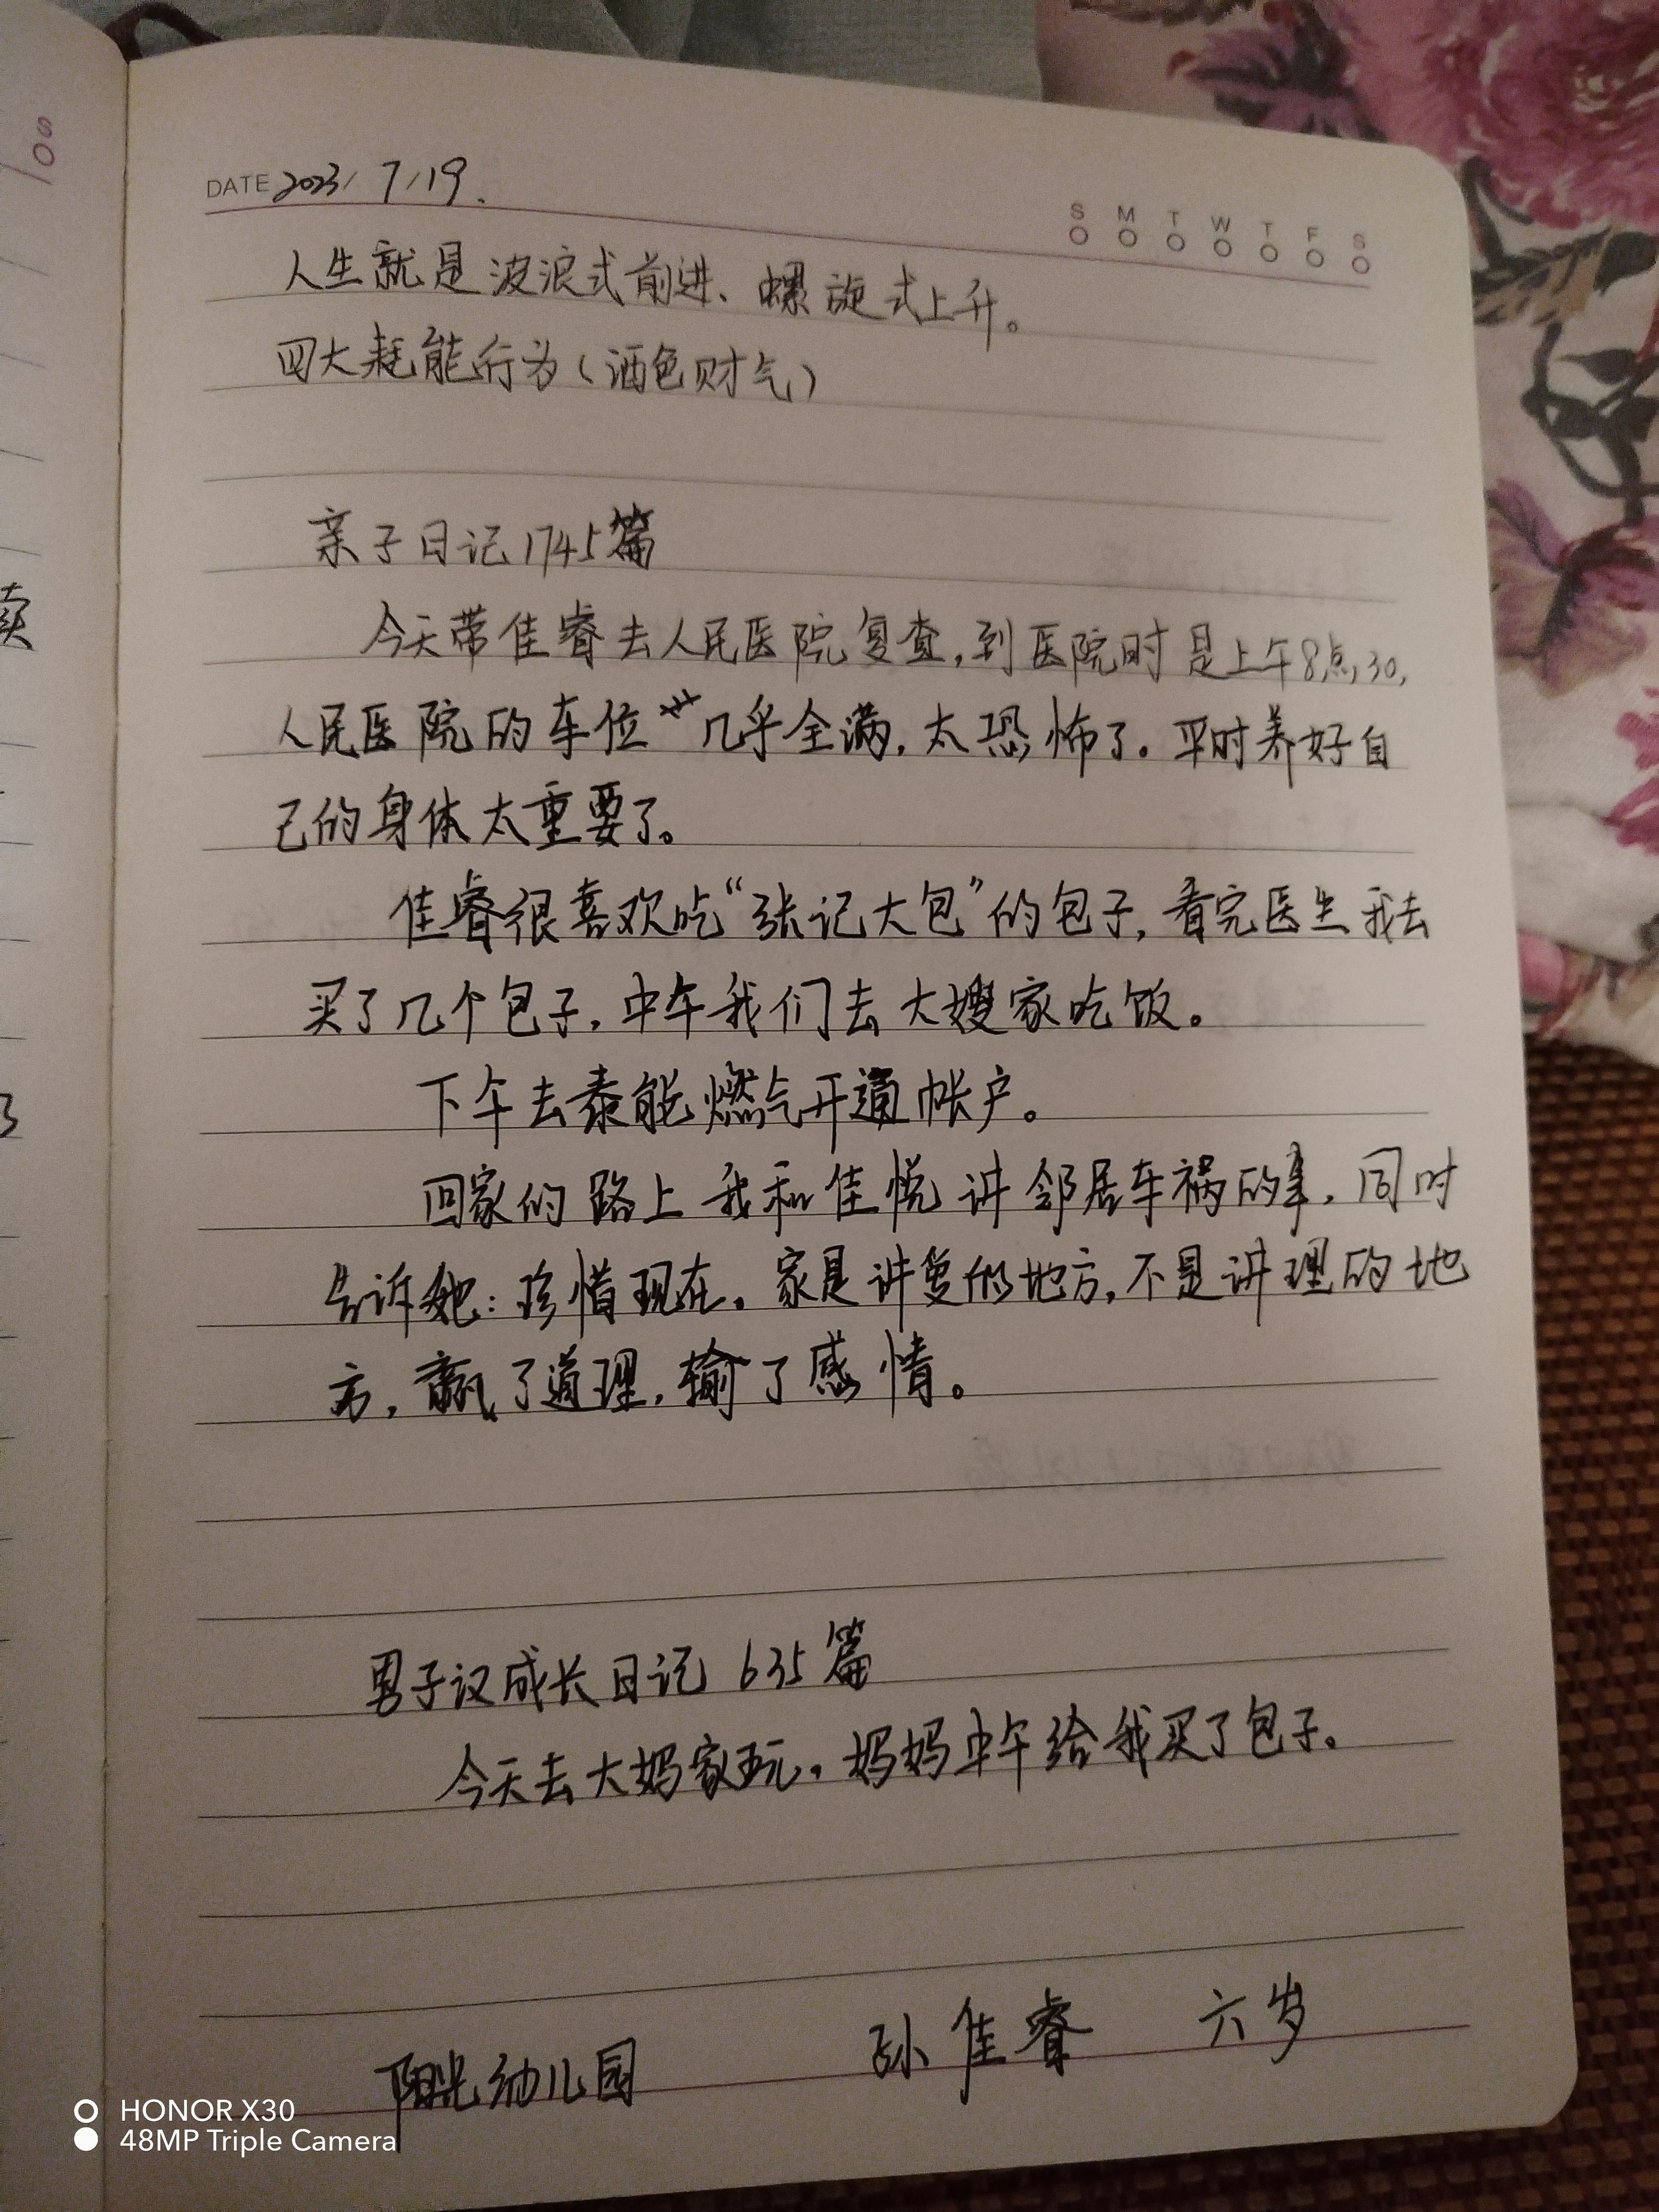 DATE 2023/7/19.
S M T W T F S
人生就是波浪式前进、螺旋式上升。
四大耗能行为（酒色财气）
亲子日记1745篇
今天带佳睿去人民医院复查,到医院时是上午8点30,
人民医院的车位几乎全满,太恐怖了。平时养好自
己的身体太重要了。
佳睿很喜欢吃“张记大包”的包子,看完医生我去
买了几个包子,中午我们去大嫂家吃饭。
下午去泰能燃气开通帐户。
回家的路上我和佳悦讲邻居车祸的事,同时
告诉她:珍惜现在。家是讲爱的地方,不是讲理的地
方,赢了道理,输了感情。
男子汉成长日记 635篇
今天去大妈家玩。妈妈中午给我买了包子。
阳光幼儿园 孙佳睿 六岁
HONOR X30
48MP Triple Camera